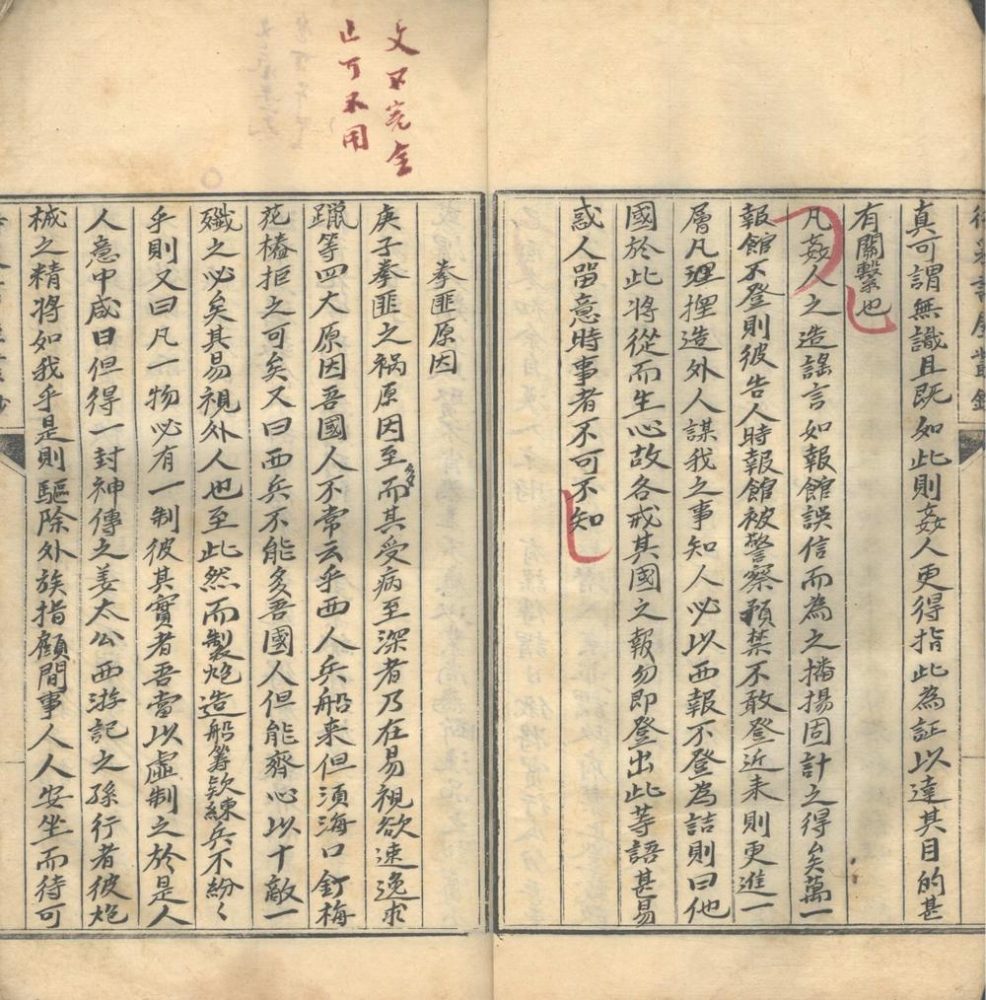 真可謂無識且既如此則姦人更得指此為証以達其目的甚
有關繫也
凡姦人之造謠言如報館誤信而為之播揚固計之得矣萬一
報館不登則彼告人時報館被警察預禁不敢登近来則更進一
層凡理揑造外人謀我之事知人必以西報不登為詰則曰他
國於此將從而生心故各戒其國之報勿即登出此等語甚易
惑人留意時事者不可不知
文不完全
止可不用
拳匪原因
庚子拳匪之禍原因至多而其受病至深者乃在易視欲速逸求
躐等四大原因吾國人不常云乎西人兵船来但須海口釘梅
花樁拒之可矣又曰西兵不能多吾國人但能齊心以十敵一
殲之必矣其易視外人也至此然而製炮造船籌欵練兵不紛〻
乎則又曰凡一物必有一制彼其實者吾當以虛制之於是人
人意中咸曰但得一封神傳之姜太公西游記之孫行者彼炮
械之精將如我乎是則驅除外族指顧間事人人安坐而待可